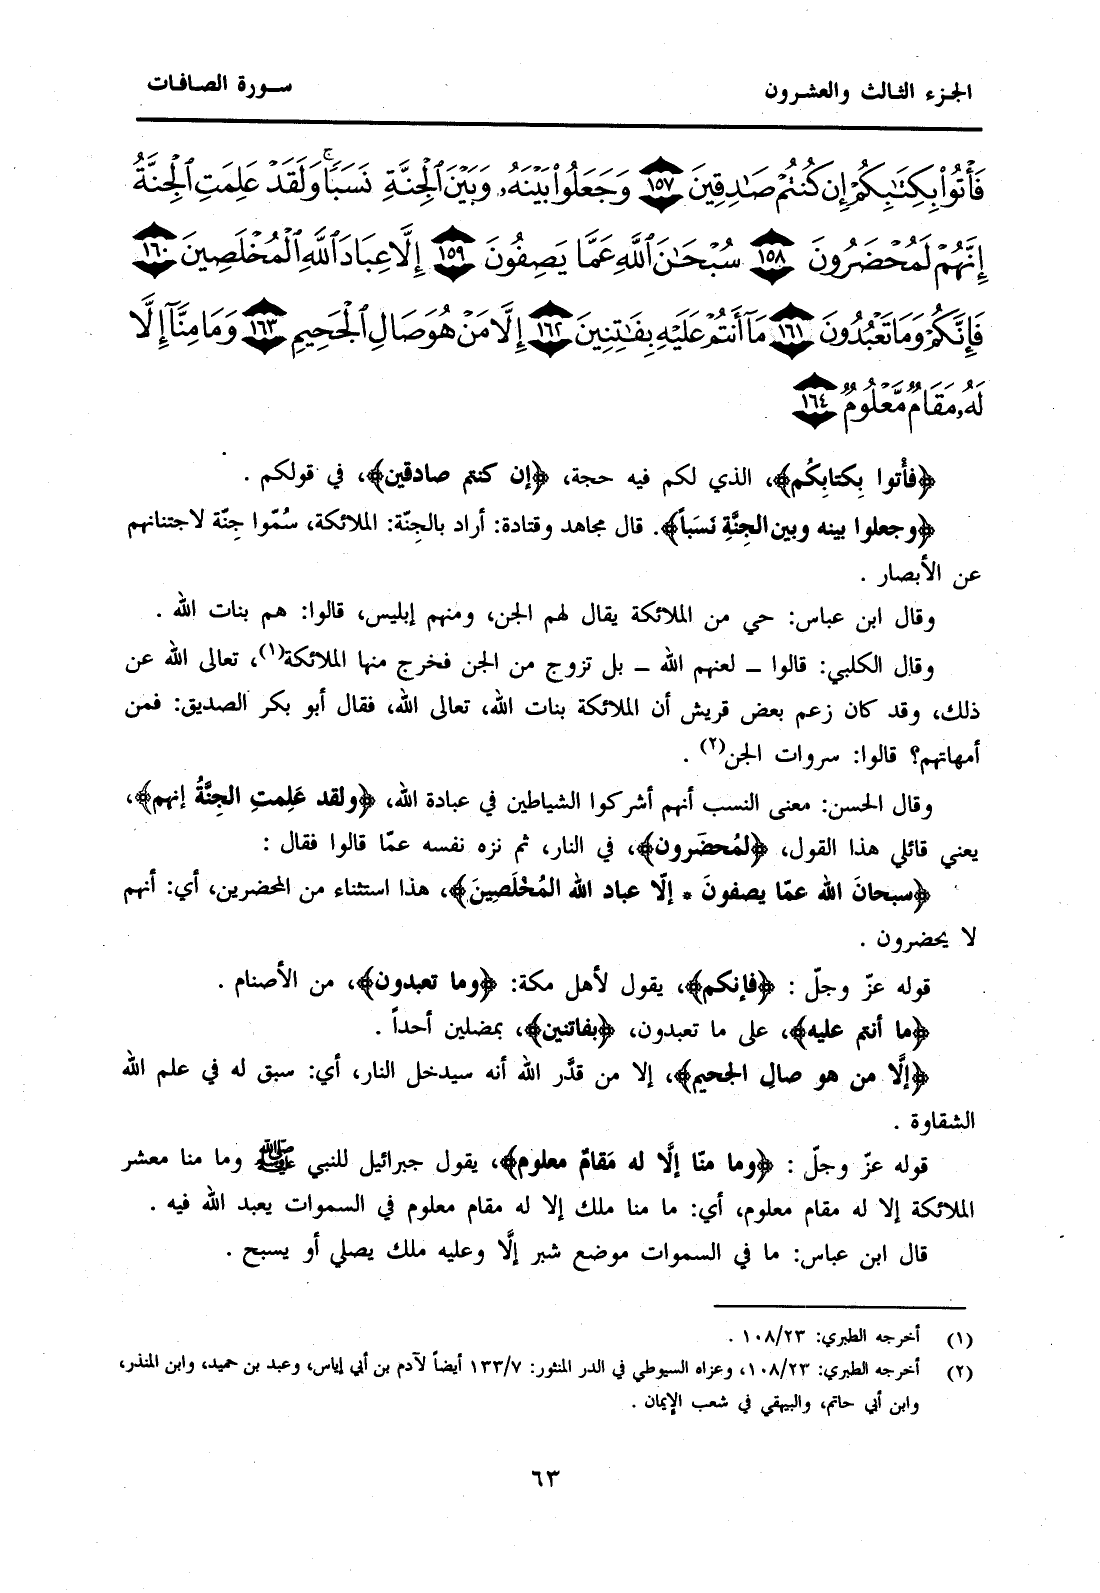 الجزء الثالث والعشرون
سورة الصافات
فَأْتُوا۟ بِكِتَٰبِكُمْ إِن كُنتُمْ صَٰدِقِينَ ١٥٧ وَجَعَلُوا۟ بَيْنَهُۥ وَبَيْنَ ٱلْجِنَّةِ نَسَبًا ۚ وَلَقَدْ عَلِمَتِ ٱلْجِنَّةُ
إِنَّهُمْ لَمُحْضَرُونَ ١٥٨ سُبْحَٰنَ ٱللَّهِ عَمَّا يَصِفُونَ ١٥٩ إِلَّا عِبَادَ ٱللَّهِ ٱلْمُخْلَصِينَ ١٦٠
فَإِنَّكُمْ وَمَا تَعْبُدُونَ ١٦١ مَآ أَنتُمْ عَلَيْهِ بِفَٰتِنِينَ ١٦٢ إِلَّا مَنْ هُوَ صَالِ ٱلْجَحِيمِ ١٦٣ وَمَا مِنَّآ إِلَّا
لَهُۥ مَقَامٌ مَّعْلُومٌ ١٦٤
﴿فأْتوا بِكتابِكُم﴾، الذي لكم فيه حجة، ﴿إن كنتم صادقين﴾، في قولكم .
﴿وجعلوا بينه وبين الجِنَّةِ نَسَباً﴾. قال مجاهد وقتادة: أراد بالجِنّة: الملائكة، سُمّوا جِنّة لاجتنانهم
عن الأبصار .
وقال ابن عباس: حي من الملائكة يقال لهم الجن، ومنهم إبليس، قالوا: هم بنات الله .
وقال الكلبي: قالوا ــ لعنهم الله ــ بل تزوج من الجن فخرج منها الملائكة(١)، تعالى الله عن
ذلك، وقد كان زعم بعض قريش أن الملائكة بنات الله، تعالى الله، فقال أبو بكر الصديق: فمن
أمهاتهم؟ قالوا: سروات الجن(٢) .
وقال الحسن: معنى النسب أنهم أشركوا الشياطين في عبادة الله، ﴿ولقد عَلِمتِ الجِنَّةُ إنهم﴾،
يعني قائلي هذا القول، ﴿لمُحضَرون﴾، في النار، ثم نزه نفسه عمّا قالوا فقال :
﴿سبحانَ الله عمّا يصفونَ * إلّا عباد الله المُخْلَصِينَ﴾، هذا استثناء من المحضرين، أي: أنهم
لا يحضرون .
قوله عزّ وجلّ : ﴿فإنكم﴾، يقول لأهل مكة: ﴿وما تعبدون﴾، من الأصنام .
﴿ما أنتم عليه﴾، على ما تعبدون، ﴿بفاتنين﴾، بمضلين أحداً .
﴿إلَّا من هو صالِ الجحيم﴾، إلا من قدَّر الله أنه سيدخل النار، أي: سبق له في علم الله
الشقاوة .
قوله عزّ وجلّ : ﴿وما منّا إلَّا له مَقامٌ معلوم﴾، يقول جبرائيل للنبي ﷺ وما منا معشر
الملائكة إلا له مقام معلوم، أي: ما منا ملك إلا له مقام معلوم في السموات يعبد الله فيه .
قال ابن عباس: ما في السموات موضع شبر إلَّا وعليه ملك يصلي أو يسبح .
(١) أخرجه الطبري: ١٠٨/٢٣ .
(٢) أخرجه الطبري: ١٠٨/٢٣، وعزاه السيوطي في الدر المنثور: ١٣٣/٧ أيضاً لآدم بن أبي إياس، وعبد بن حميد، وابن المنذر،
وابن أبي حاتم، والبيهقي في شعب الإيمان .
٦٣